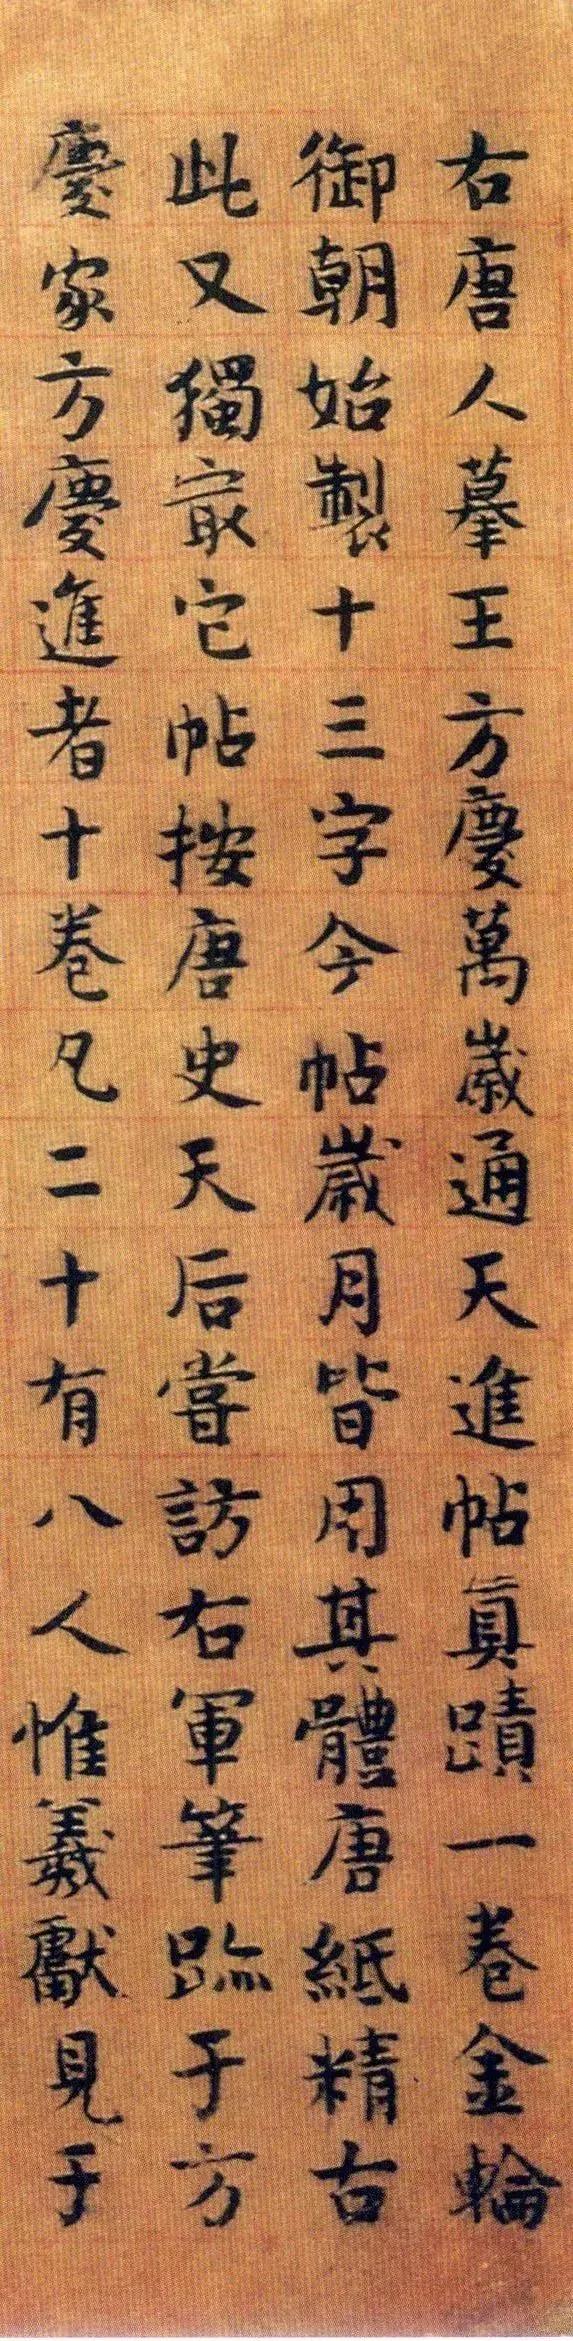 右唐人摹王方慶萬歲通天進帖眞蹟一卷金輪
御朝始製十三字今帖歲月皆用其體唐紙精古
此又獨㝡它帖按唐史天后嘗訪右軍筆跡于方
慶家方慶進者十卷凡二十有八人惟羲獻見于